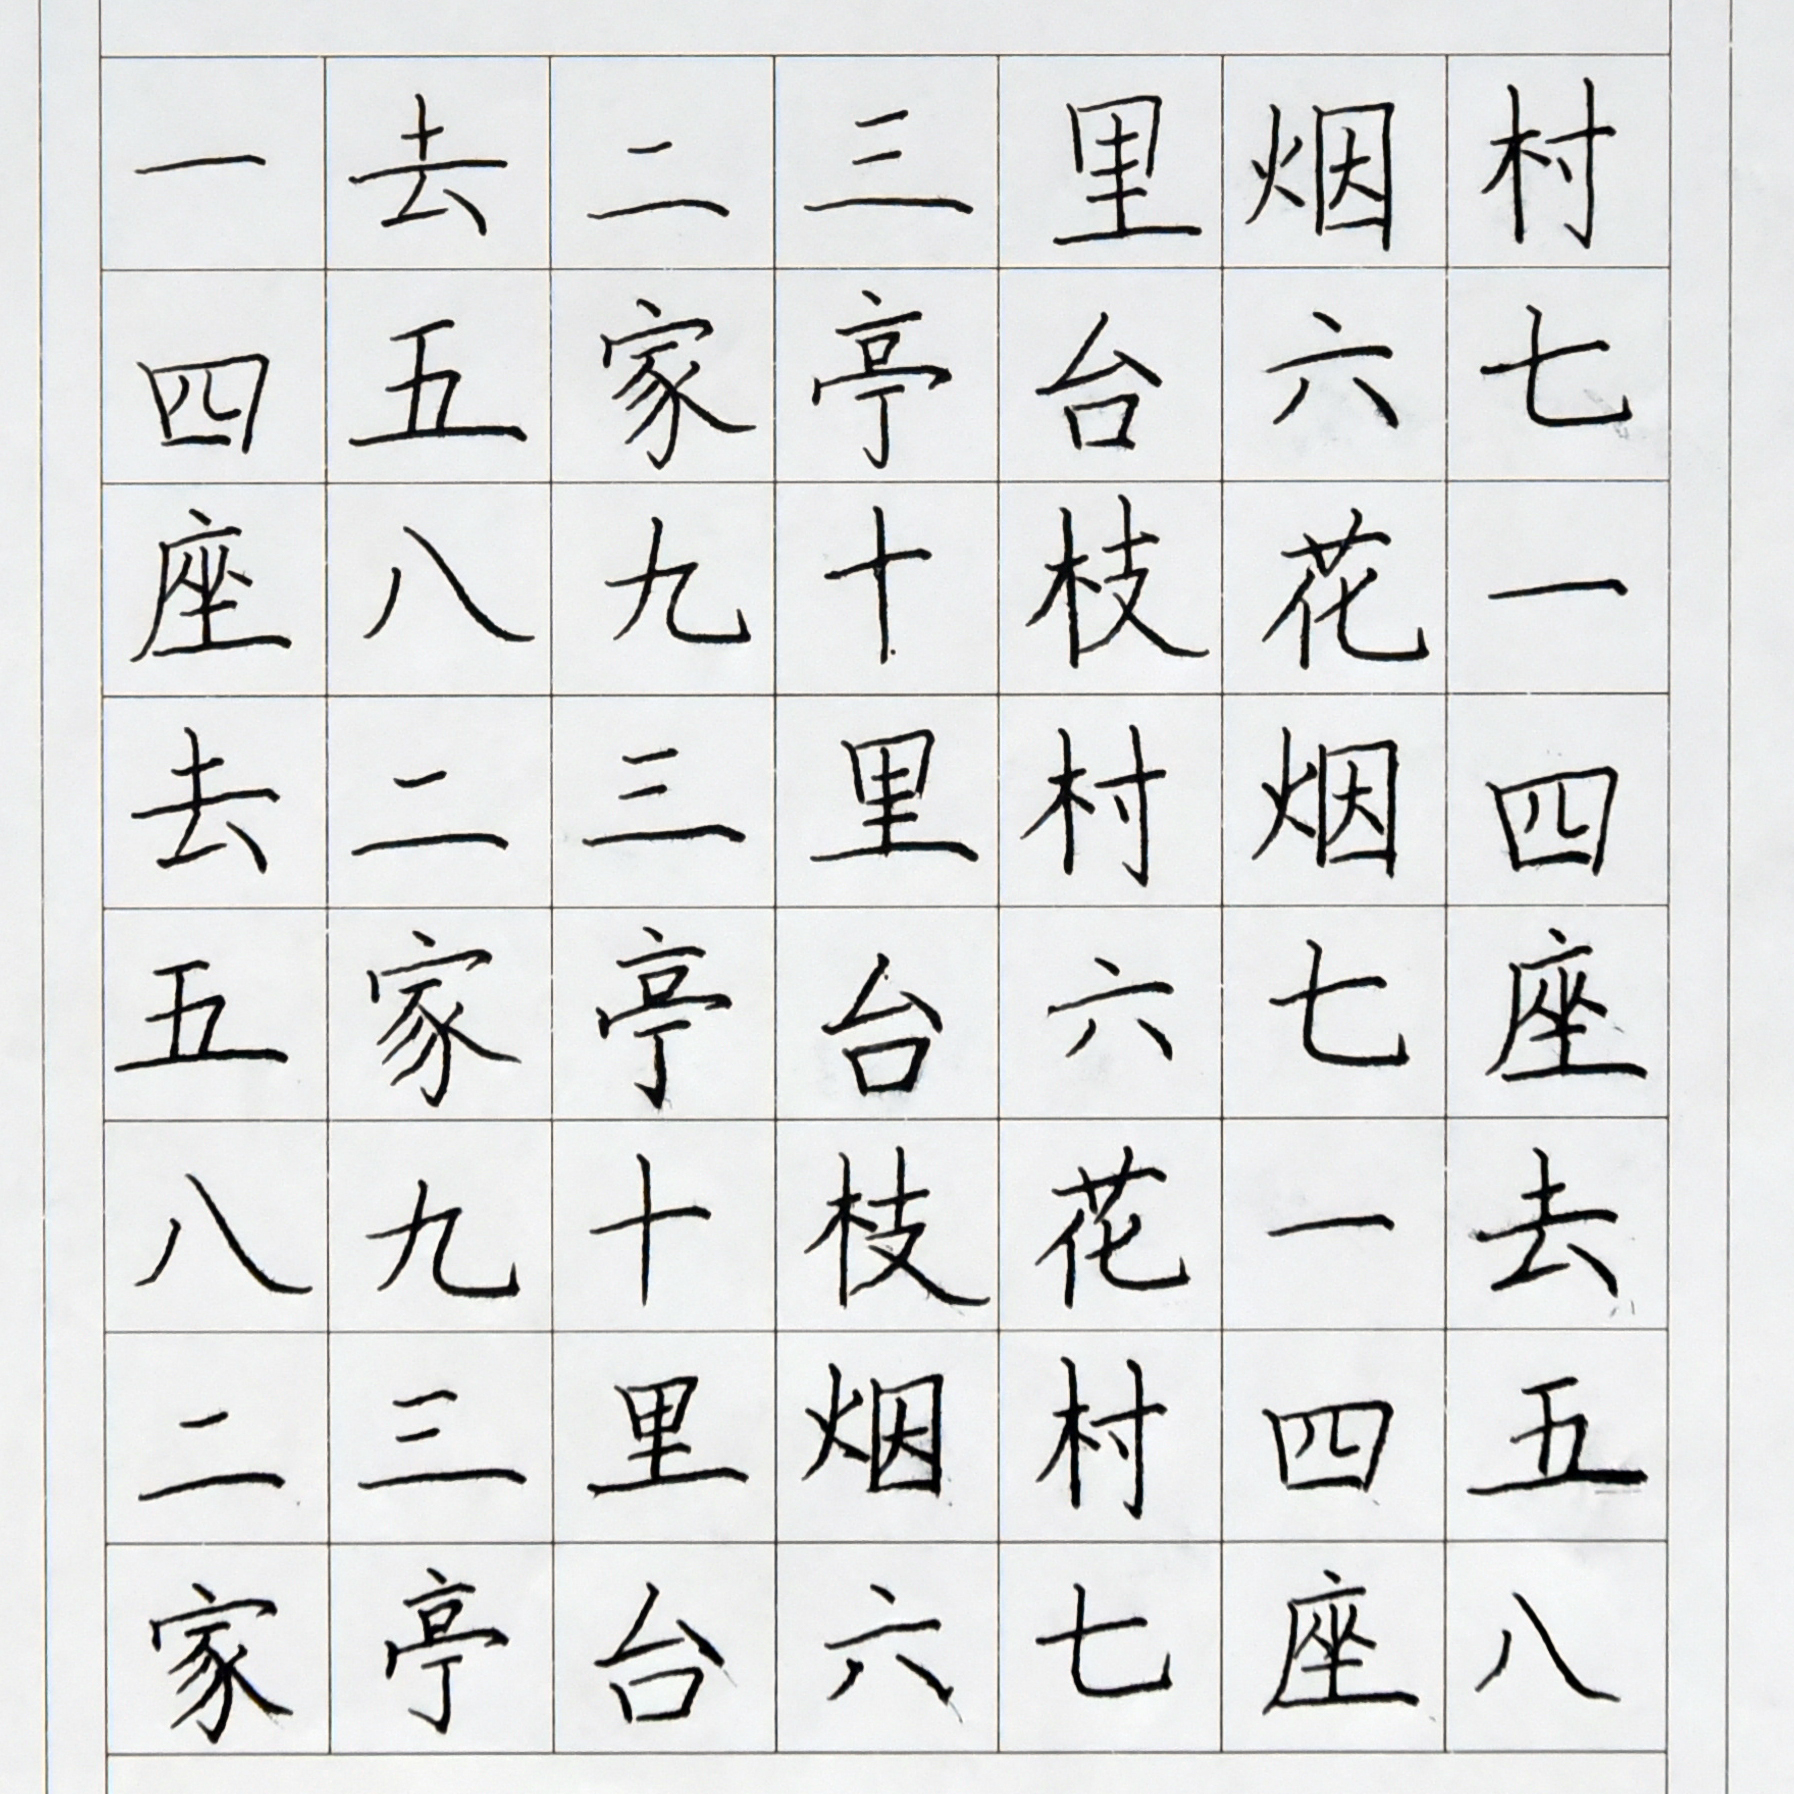 一去二三里烟村
四五家亭台六七
座八九十枝花一
去二三里村烟四
五家亭台六七座
八九十枝花一去
二三里烟村四五
家亭台六七座八